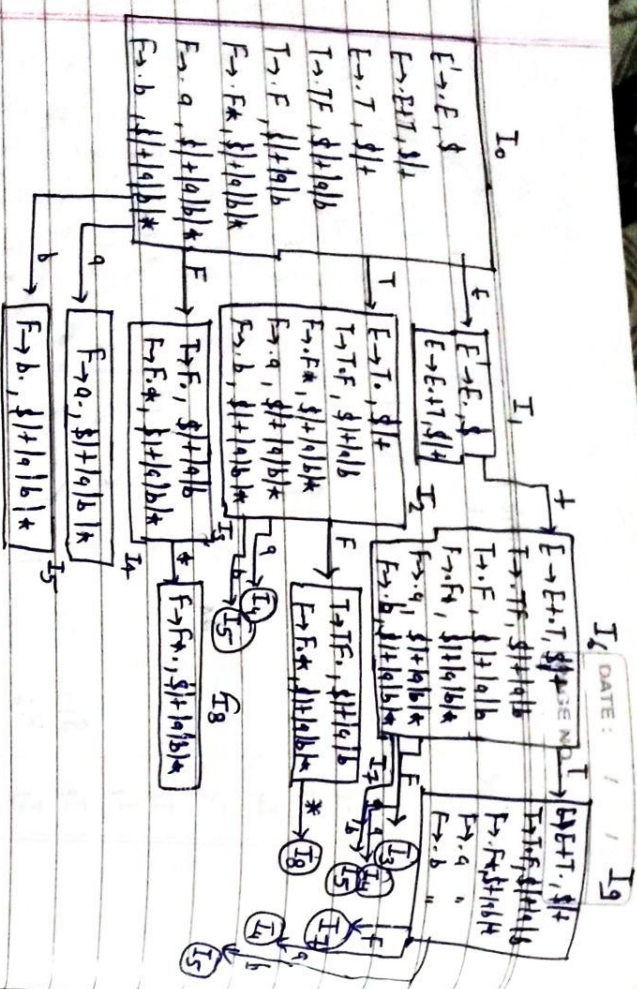 I₀
E'→.E, $
E→.E+T, $/+
E→.T, $/+
T→.TF, $/+/a/b
T→.F, $/+/a/b
F→.F*, $/+/a/b/*
F→.a, $/+/a/b/*
F→.b, $/+/a/b/*
E
I₁
E'→E., $
E→E.+T, $/+
+
T
I₂
E→T., $/+
T→T.F, $/+/a/b
F→.F*, $/+/a/b/*
F→.a, $/+/a/b/*
F→.b, $/+/a/b/*
F
T→F., $/+/a/b
F→F.*, $/+/a/b/*
I₃
a
F→a., $/+/a/b/*
I₄
b
F→b., $/+/a/b/*
I₅
I₆
E→E+.T, $/+
T→.TF, $/+/a/b
T→.F, $/+/a/b
F→.F*, $/+/a/b/*
F→.a, $/+/a/b/*
F→.b, $/+/a/b/*
F
T→TF., $/+/a/b
F→F.*, $/+/a/b/*
I₇
a
I₄
b
I₅
*
F→F*., $/+/a/b/*
I₈
DATE: / /
PAGE NO.
T
I₉
E→E+T., $/+
T→T.F, $/+/a/b
F→.F*, $/+/a/b/*
F→.a "
F→.b "
F
I₃
a
I₄
b
I₅
*
I₈
F
I₇
a
I₄
b
I₅